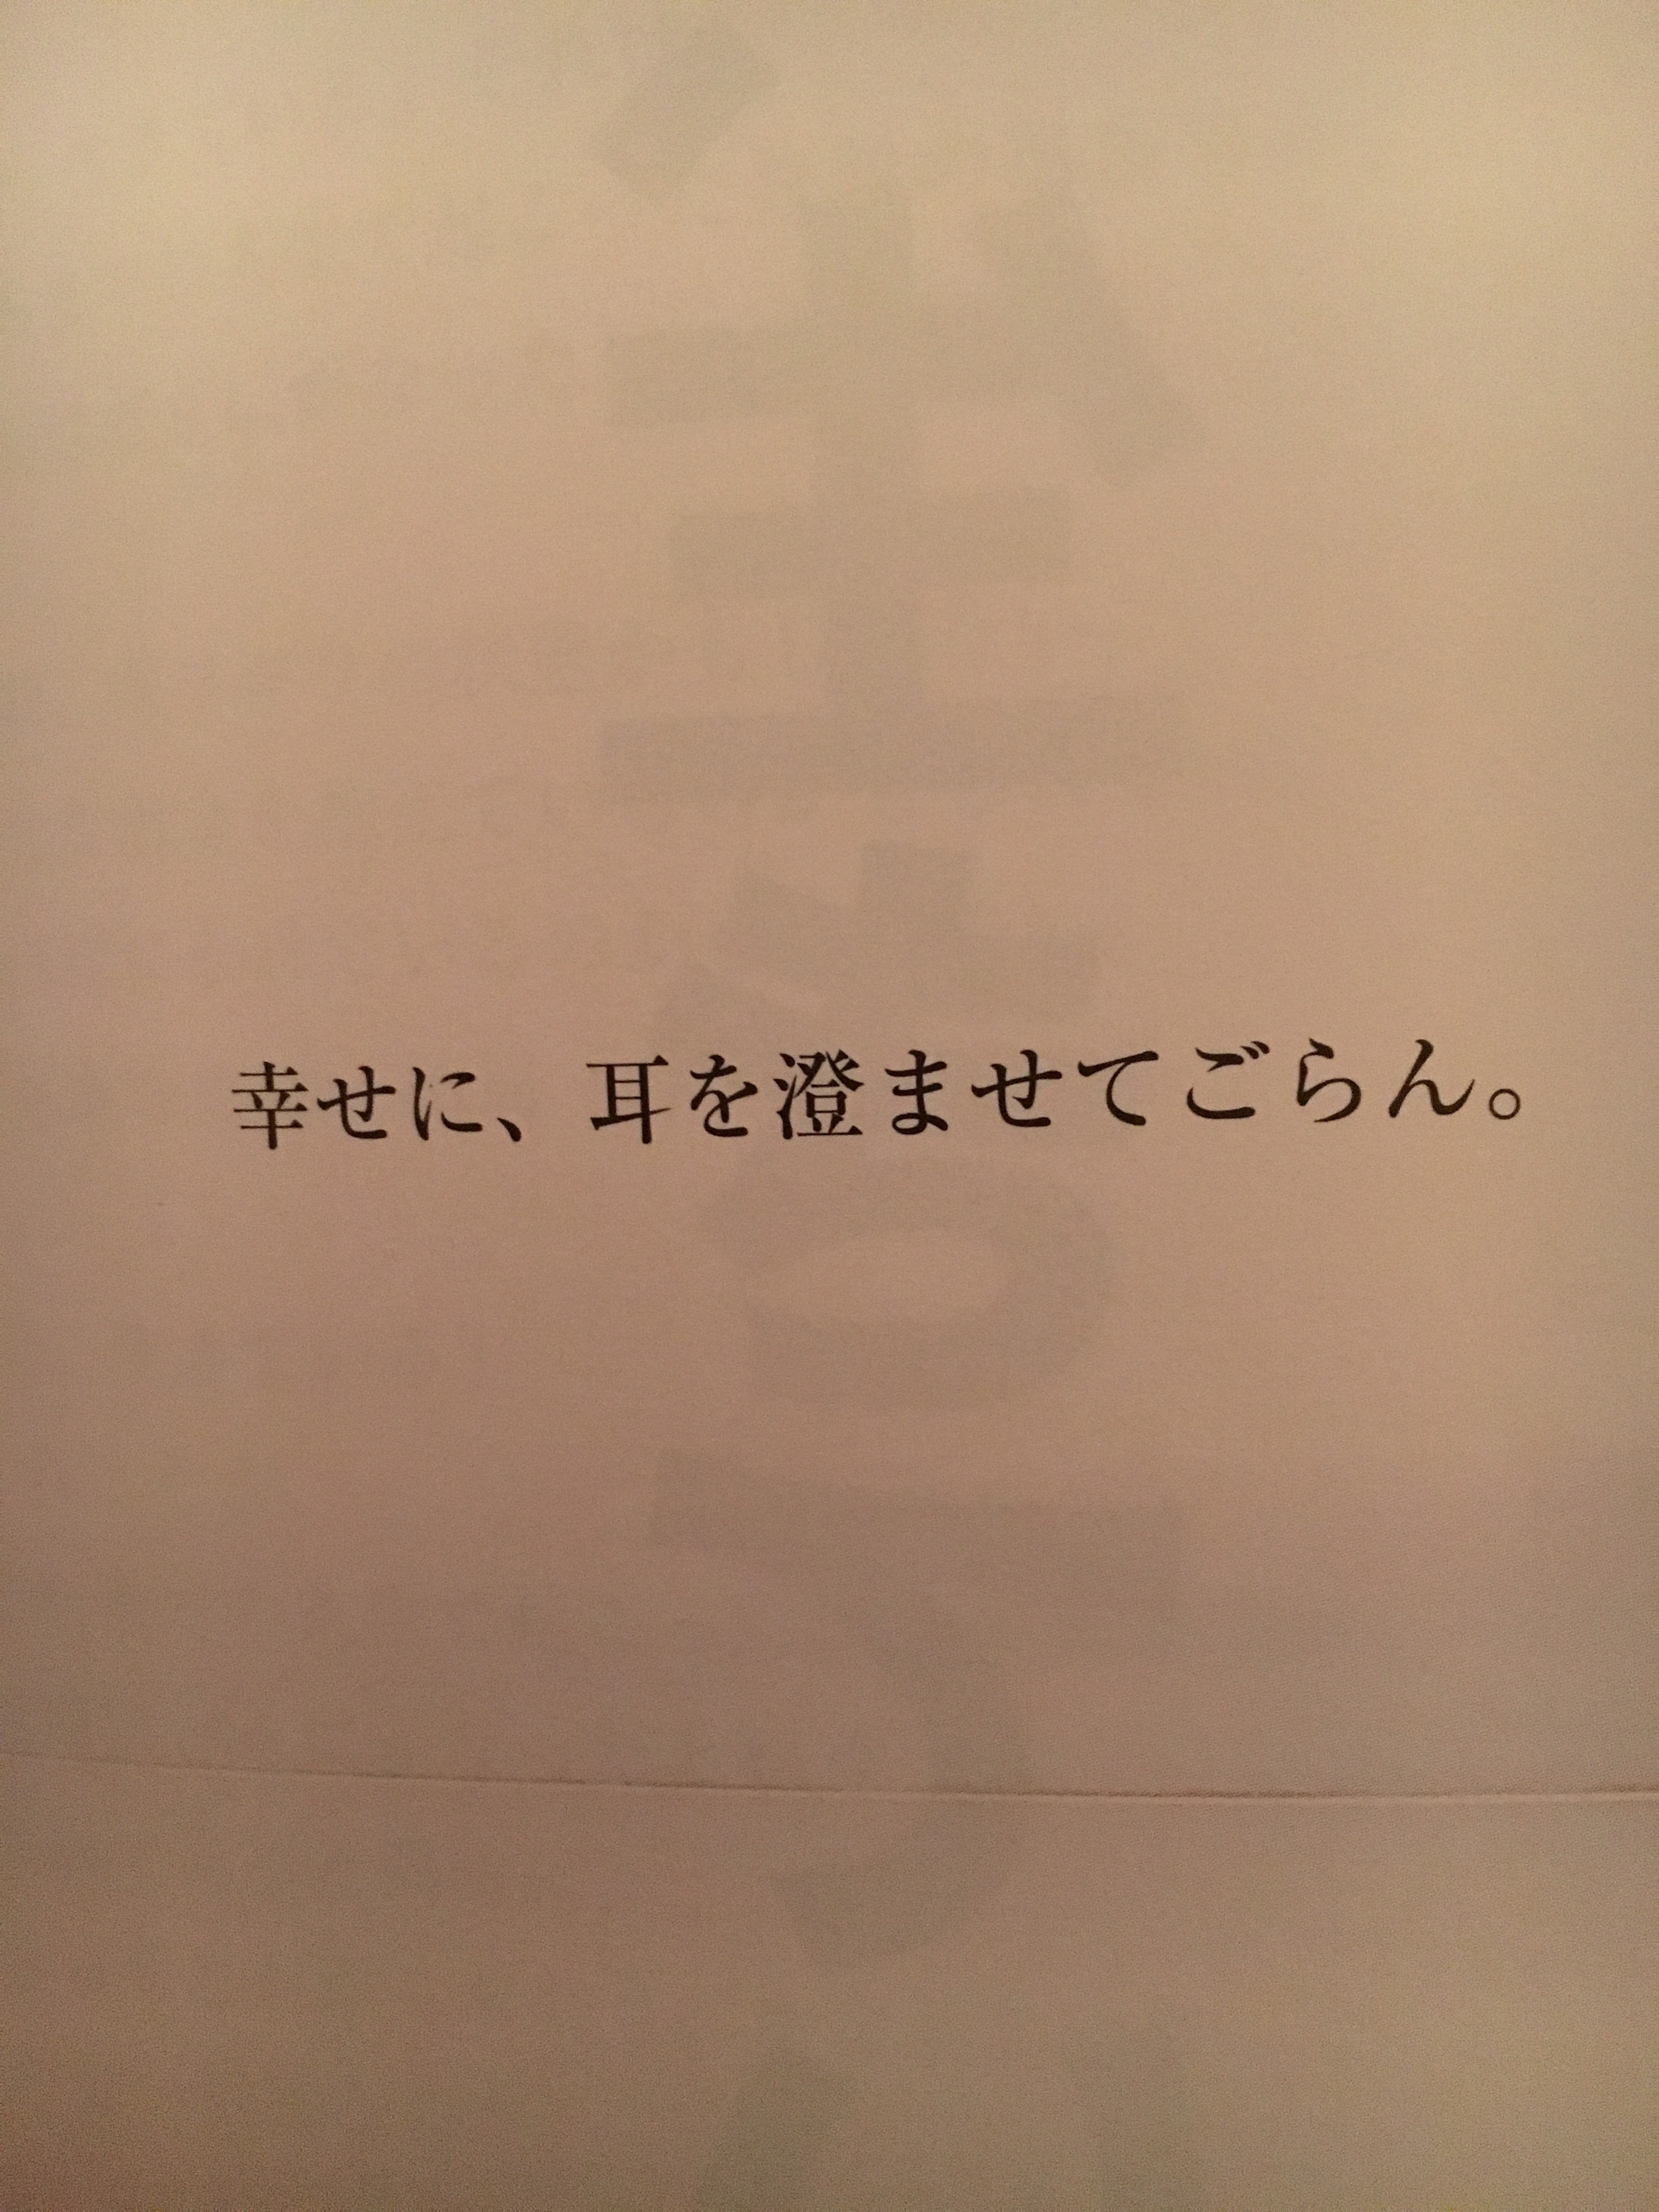 幸せに、耳を澄ませてごらん。